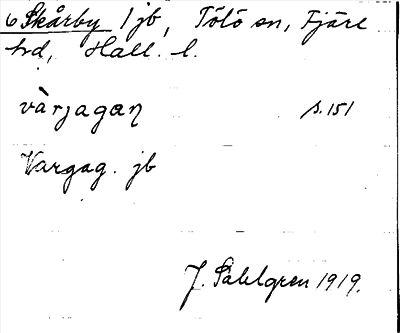 6 Skårby 1 jb, Tölö sn, Fjäre
hd, Hall. l.
vàrjagaɳ s. 151
Vargag. jb
J. Sahlgren 1919.